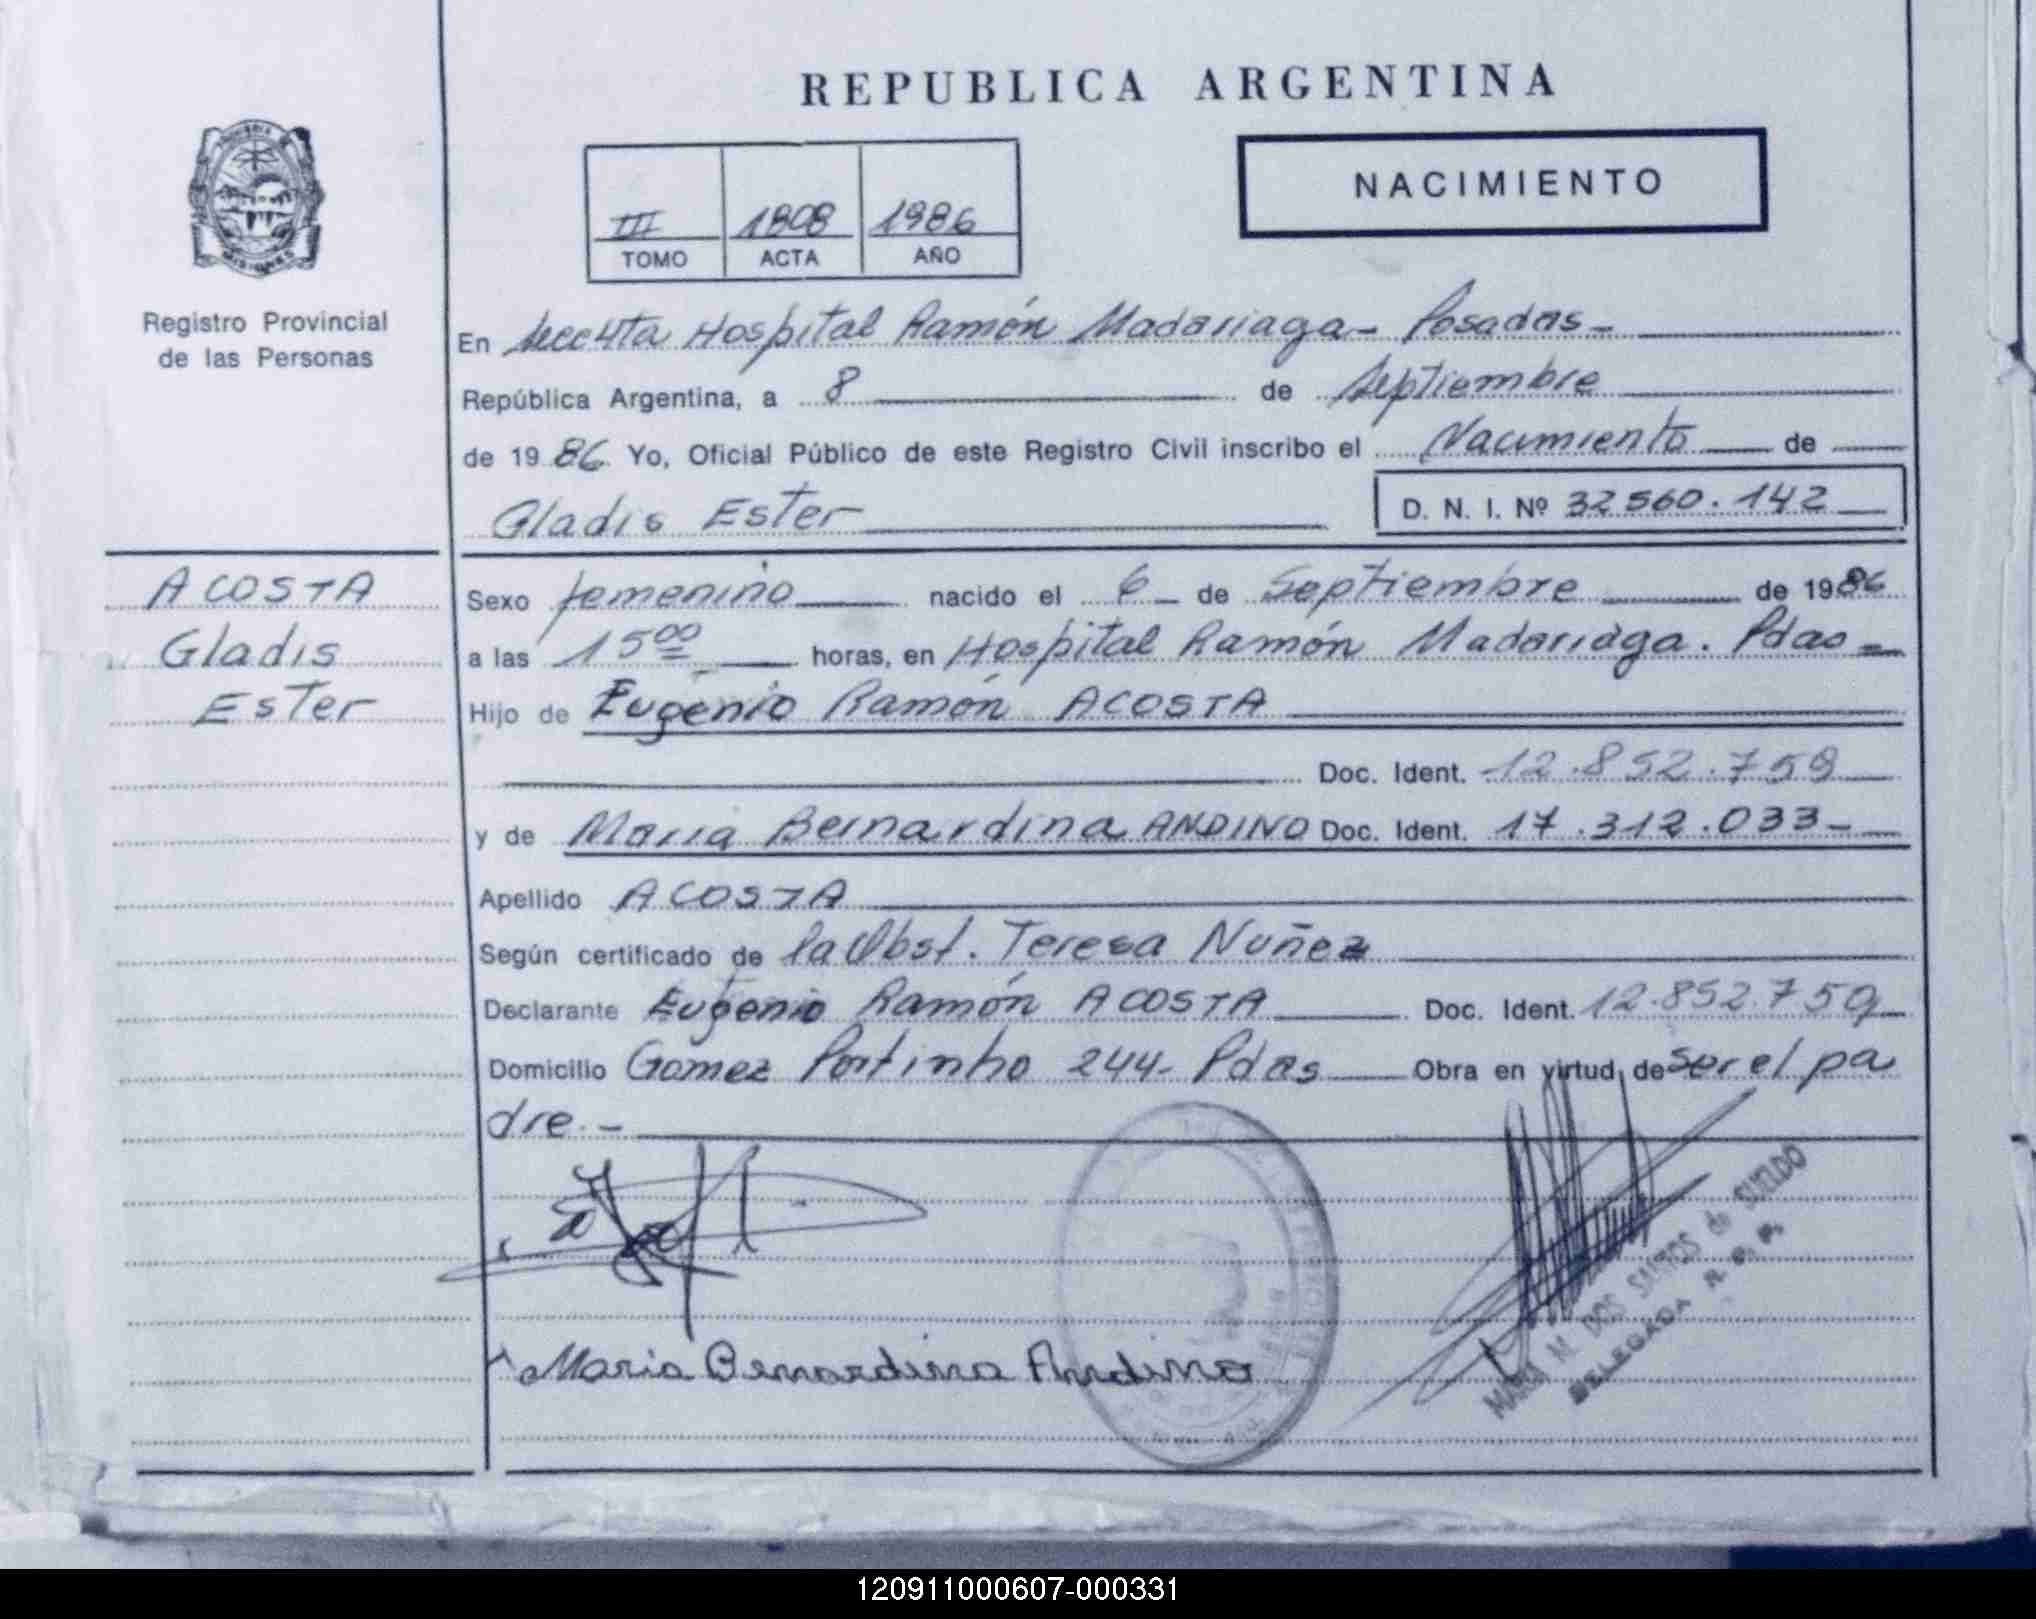 REPUBLICA ARGENTINA
MISIONES
Registro Provincial
de las Personas
III 1808 1986
TOMO ACTA AÑO
NACIMIENTO
En Secc 4ta Hospital Ramón Madariaga - Posadas -
República Argentina, a 8 de Septiembre
de 1986 Yo, Oficial Público de este Registro Civil inscribo el Nacimiento de
Gladis Ester D. N. I. Nº 32560.142
ACOSTA
Gladis
Ester
Sexo femenino nacido el 6 de Septiembre de 1986
a las 15 00 horas, en Hospital Ramón Madariaga. Pdas -
Hijo de Eugenio Ramón ACOSTA
Doc. Ident. 12.852.759
y de Maria Bernardina ANDINO Doc. Ident. 17.312.033 -
Apellido ACOSTA
Según certificado de la Obst. Teresa Nuñez
Declarante Eugenio Ramón ACOSTA Doc. Ident. 12.852.759
Domicilio Gomez Portinho 244 - Pdas Obra en virtud de ser el pa
dre. -
Maria Bernardina Andino
MARIA M. DOS SANTOS de SUELDO
DELEGADA R. P. P.
120911000607-000331